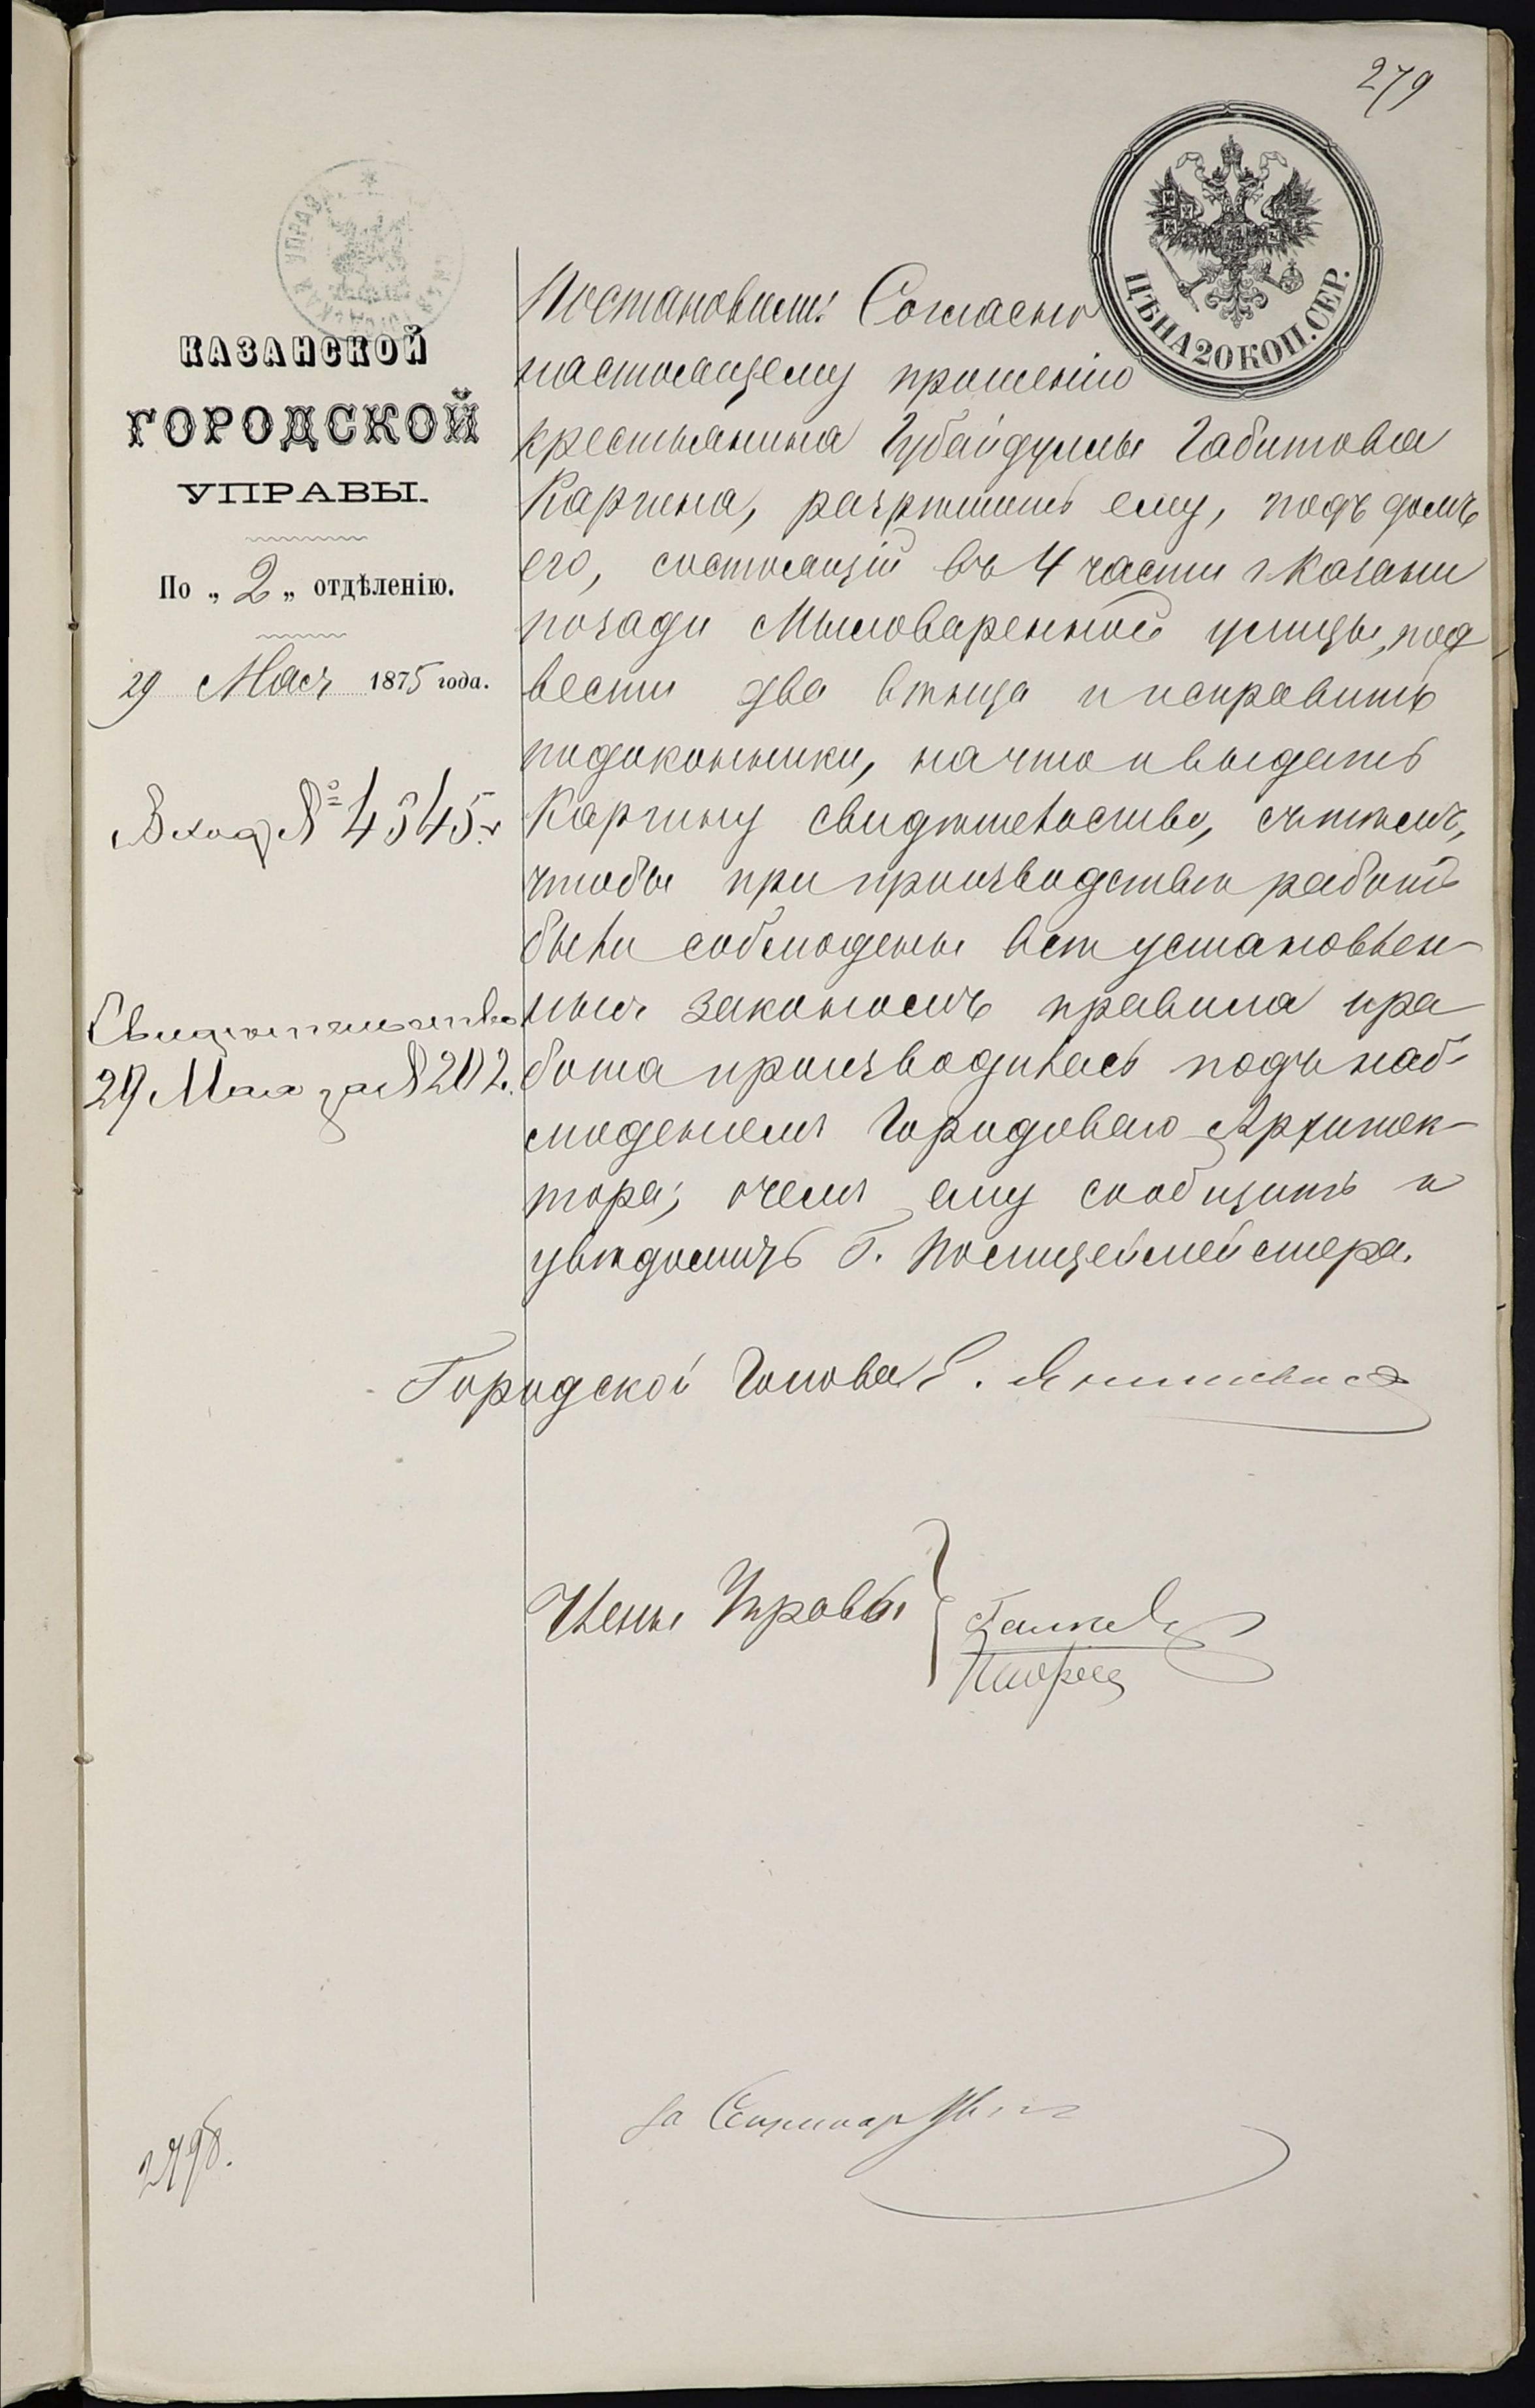 279
ЦѢНА 20 КОП. СЕР.
КАЗАНСКОЙ
ГОРОДСКОЙ
УПРАВЫ.
По „2„ отдѣленію.
29 Мая 1875 года.
Вход № 4545.
Свидѣтельство
29 Мая за № 2112.
Постановили: Согласно
настоящему прошенію
крестьянина Губайдуллы Габитова
Каргина, разрѣшить ему, подъ домъ
его, состоящій въ 4 части г. Казани
позади Мыловаренной улицы, под
вести два вѣнца и исправить
подоконники, на что и выдать
Каргину свидѣтельство, съ тѣмъ,
чтобы при производствѣ работъ
были соблюдены всѣ установлен-
ныя закономъ правила и ра
бота производилась подъ наб-
люденіемъ Городоваго Архитек-
тора; о чемъ ему сообщить и
увѣдомить Г. Полицеймейстера.
Городской Голова Э. Янишевскій
Члены Управы
за Секретаря